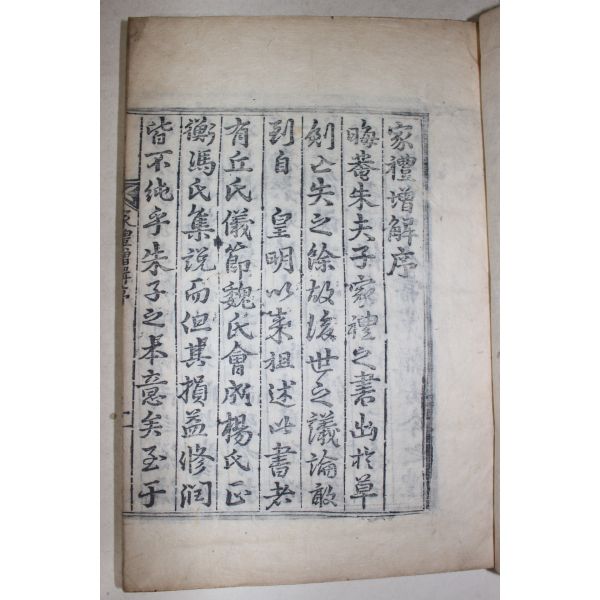 家禮增解序
晦菴朱夫子家禮之書出於草
創亡失之餘故後世之議論敢
到自 皇明以來祖述此書者
有丘氏儀節魏氏會成楊氏正
衡馮氏集說而但其損益修潤
皆不純乎朱子之本意矣至于
家禮增解序